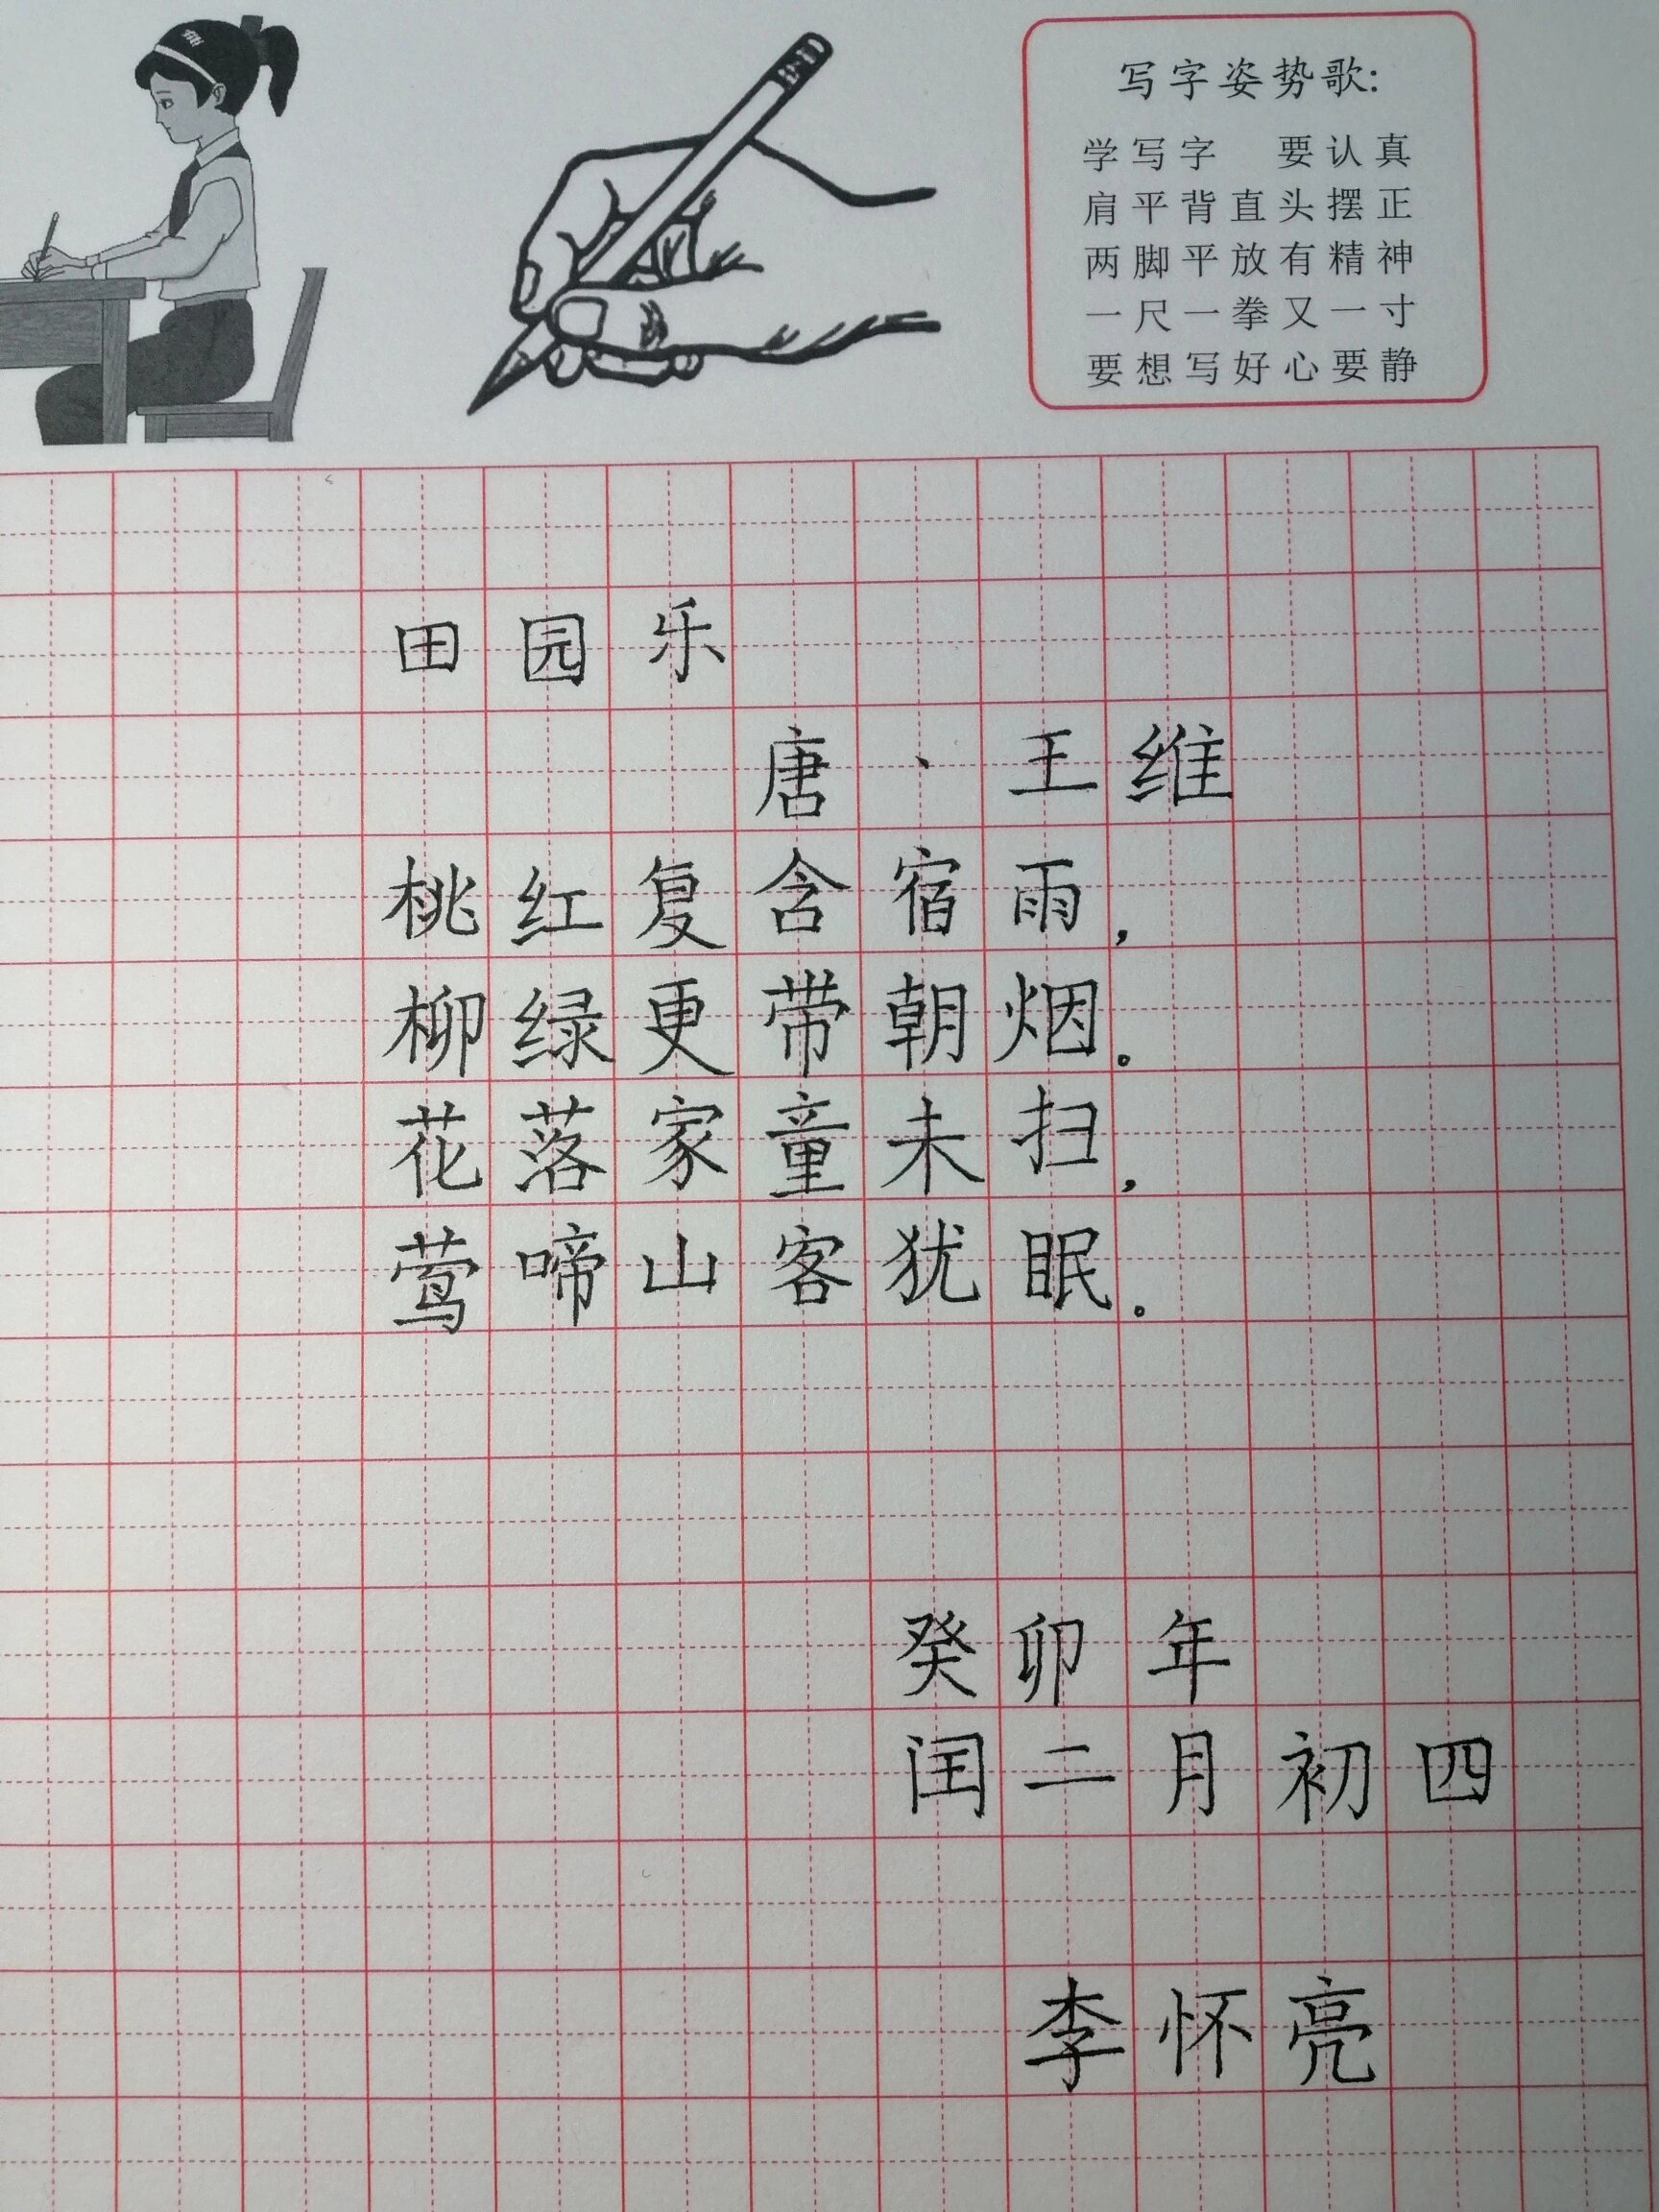 写字姿势歌:
学写字 要认真
肩平背直头摆正
两脚平放有精神
一尺一拳又一寸
要想写好心要静
田园乐
唐·王维
桃红复含宿雨,
柳绿更带朝烟。
花落家童未扫,
莺啼山客犹眠。
癸卯年
闰二月初四
李怀亮